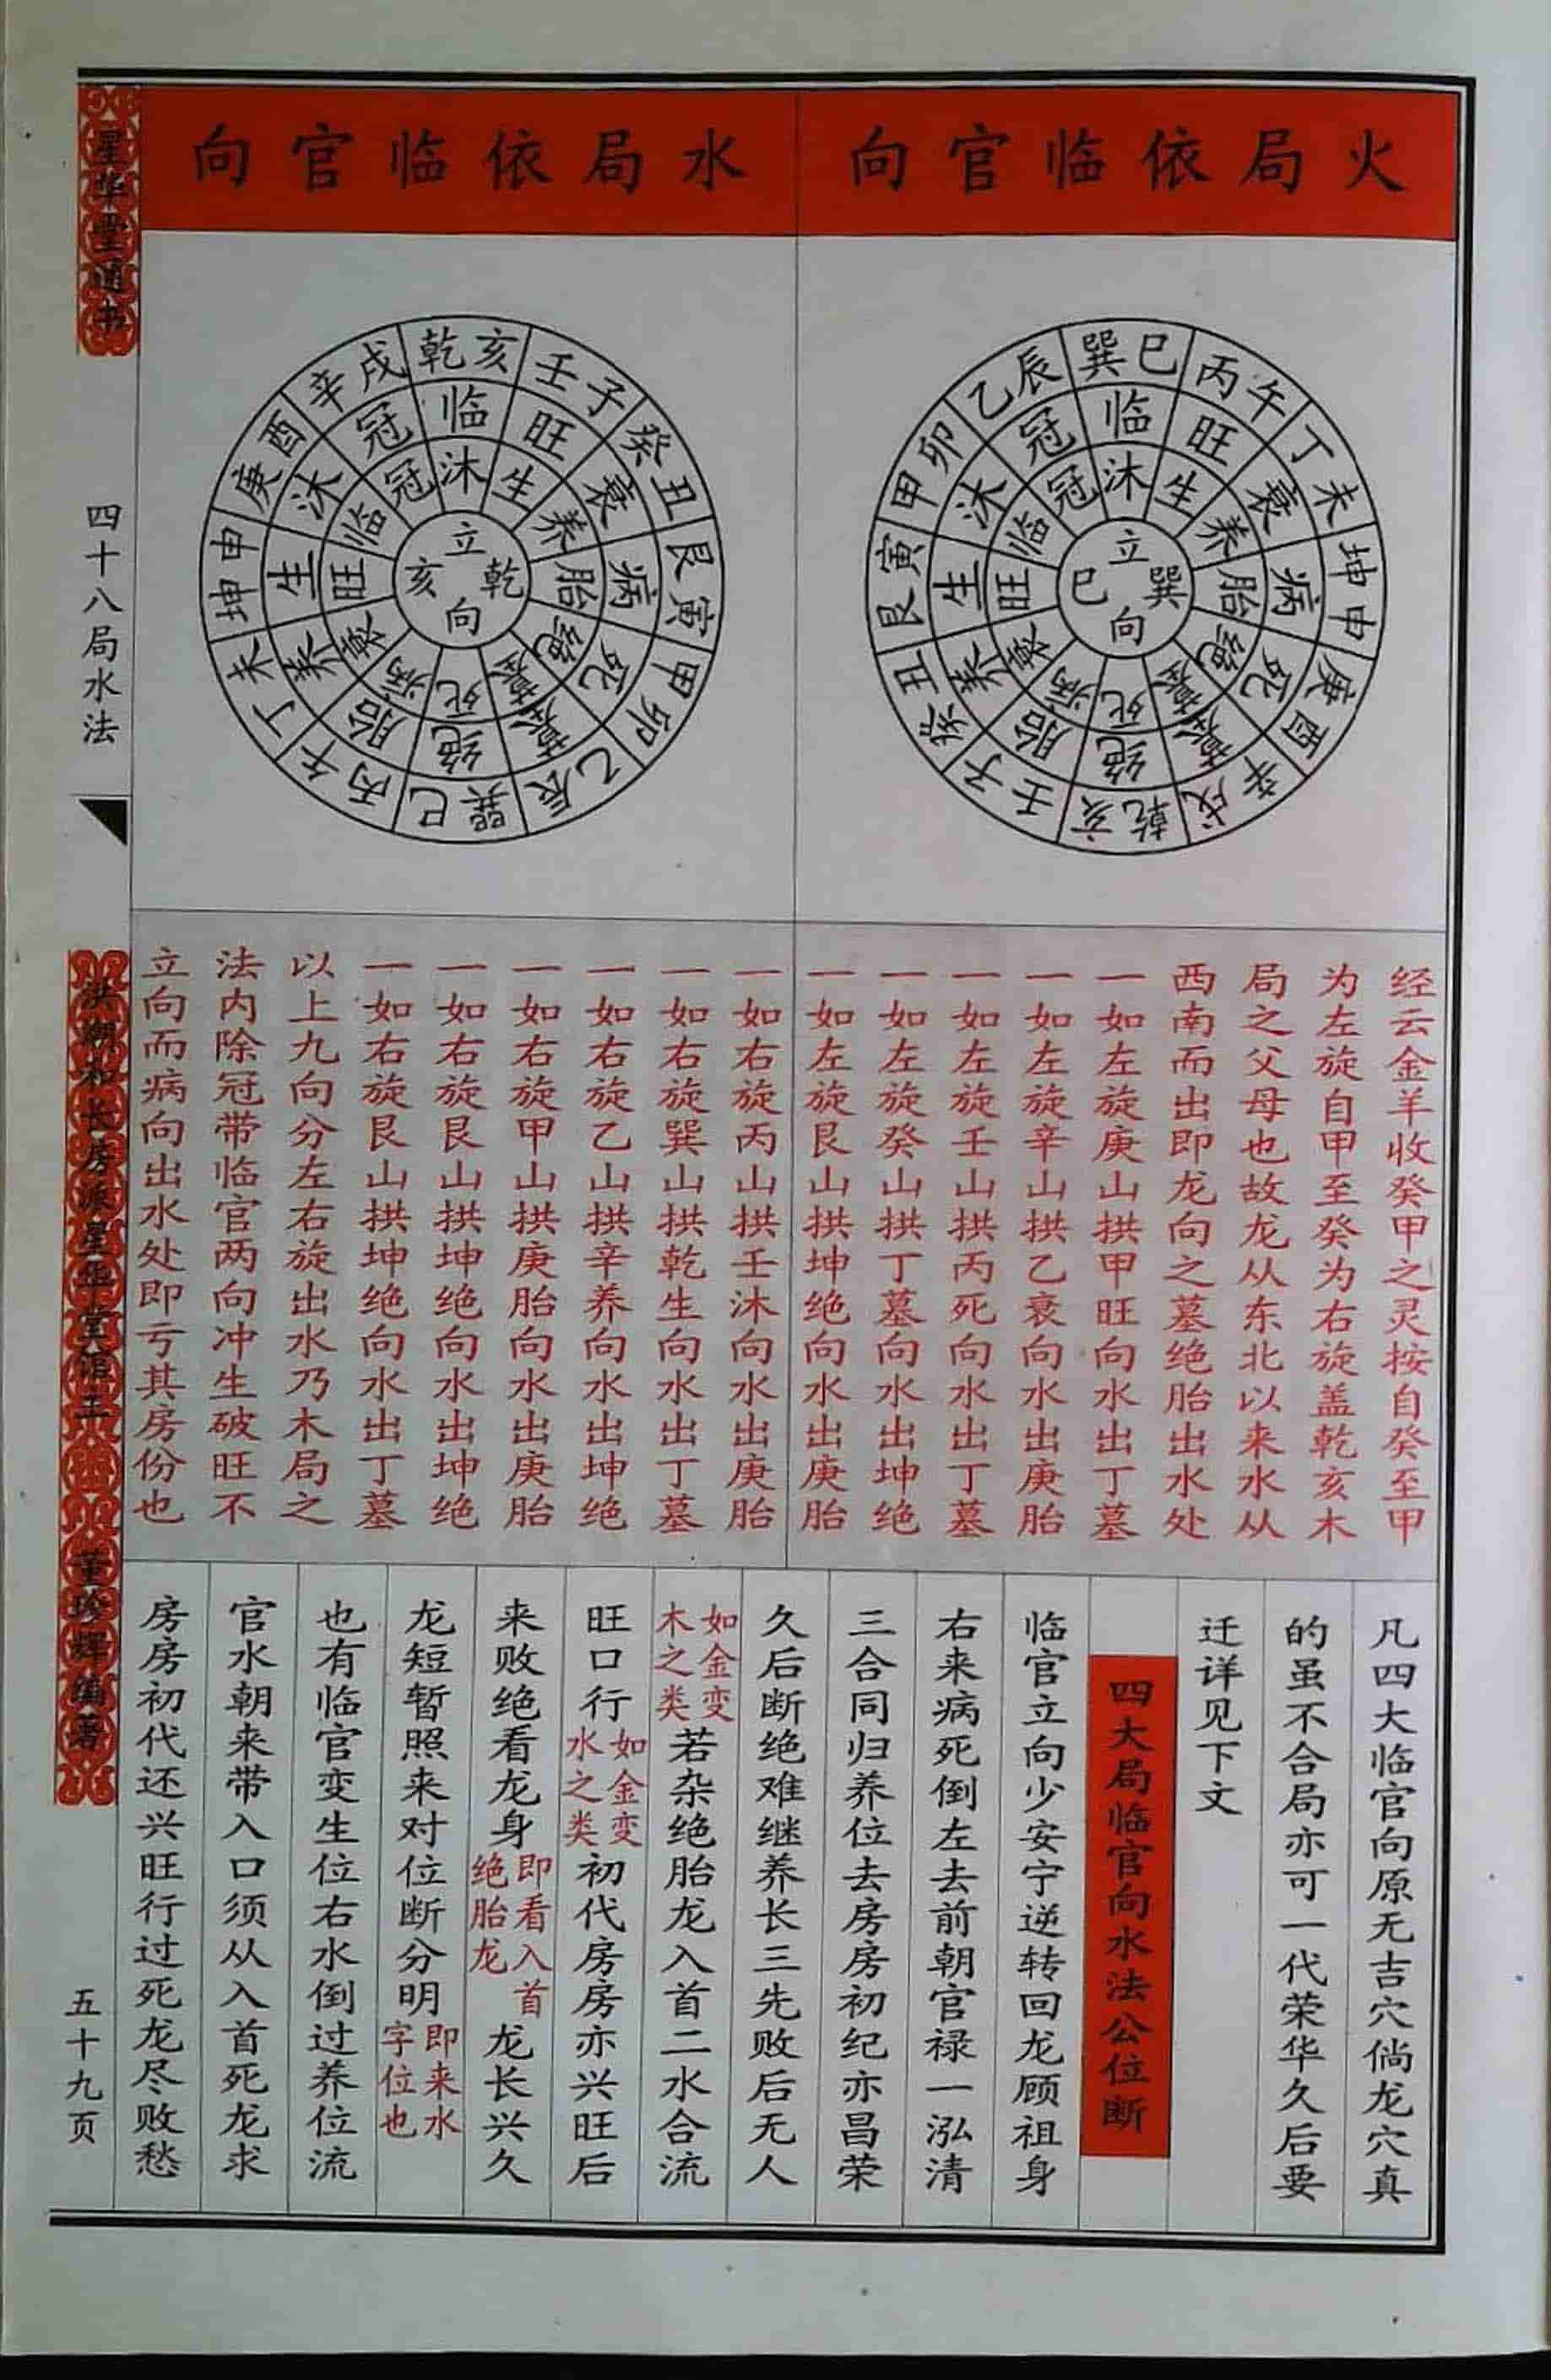 火局依临官向
水局依临官向
巽巳
丙午
丁未
坤申
庚酉
辛戌
乾亥
壬子
癸丑
艮寅
甲卯
乙辰
临
旺
衰
病
死
墓
绝
胎
养
生
沐
冠
沐
生
养
胎
绝
墓
死
病
衰
旺
临
冠
立
巽
向
巳
乾亥
壬子
癸丑
艮寅
甲卯
乙辰
巽巳
丙午
丁未
坤申
庚酉
辛戌
临
旺
衰
病
死
墓
绝
胎
养
生
沐
冠
沐
生
养
胎
绝
墓
死
病
衰
旺
临
冠
立
乾
向
亥
经云金羊收癸甲之灵按自癸至甲
为左旋自甲至癸为右旋盖乾亥木
局之父母也故龙从东北以来水从
西南而出即龙向之墓绝胎出水处
一如左旋庚山拱甲旺向水出丁墓
一如左旋辛山拱乙衰向水出庚胎
一如左旋壬山拱丙死向水出丁墓
一如左旋癸山拱丁墓向水出坤绝
一如左旋艮山拱坤绝向水出庚胎
一如右旋丙山拱壬沐向水出庚胎
一如右旋巽山拱乾生向水出丁墓
一如右旋乙山拱辛养向水出坤绝
一如右旋甲山拱庚胎向水出庚胎
一如右旋艮山拱坤绝向水出坤绝
一如右旋艮山拱坤绝向水出丁墓
以上九向分左右旋出水乃木局之
法内除冠带临官两向冲生破旺不
立向而病向出水处即亏其房份也
凡四大临官向原无吉穴倘龙穴真
的虽不合局亦可一代荣华久后要
迁详见下文
四大局临官向水法公位断
临官立向少安宁逆转回龙顾祖身
右来病死倒左去前朝官禄一泓清
三合同归养位去房房初纪亦昌荣
久后断绝难继养长三先败后无人
如金变木之类若杂绝胎龙入首二水合流
旺口行如金变水之类初代房房亦兴旺后
来败绝看龙身即看入首绝胎龙龙长兴久
龙短暂照来对位断分明即来水字位也
也有临官变生位右水倒过养位流
官水朝来带入口须从入首死龙求
房房初代还兴旺行过死龙尽败愁
星华堂通书
四十八局水法
洪潮和长房派星华堂馆主
董珍辉编著
五十九页